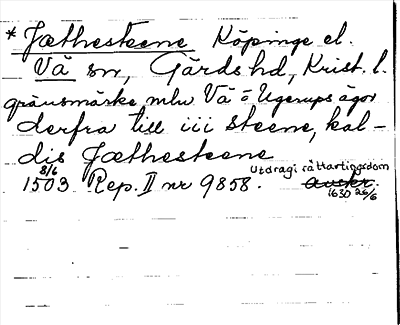 * Jæthesteene Köpinge el.
Vä sn, Gärds hd, Krist. l.
gränsmärke mlw Vä o Ugerups ägor
derfra till iii steene, kal-
dis Jæthesteene
8/6 1503 Rep. II nr 9858. Utdrag i rättartingsdom
1630 26/6